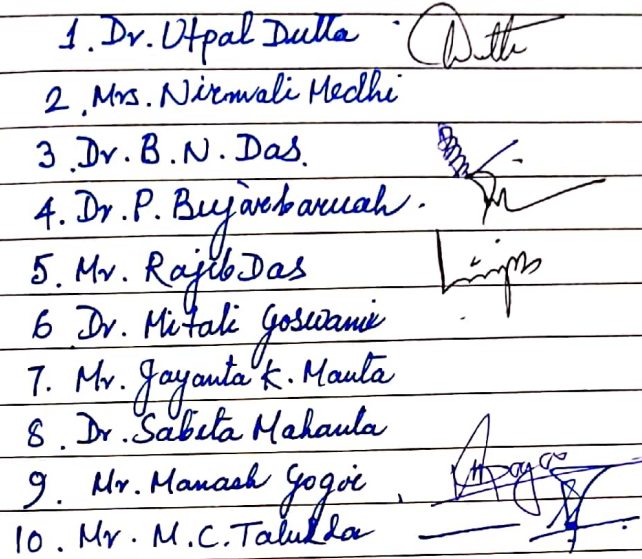 1. Dr. Utpal Dutta
2. Mrs. Nirmali Medhi
3. Dr. B. N. Das.
4. Dr. P. Bujarbaruah.
5. Mr. Rajib Das
6 Dr. Mitali Goswami
7. Mr. Jayanta K. Mauta
8. Dr. Sabita Mahanta
9. Mr. Manash Gogoi
10. Mr. M. C. Talukda